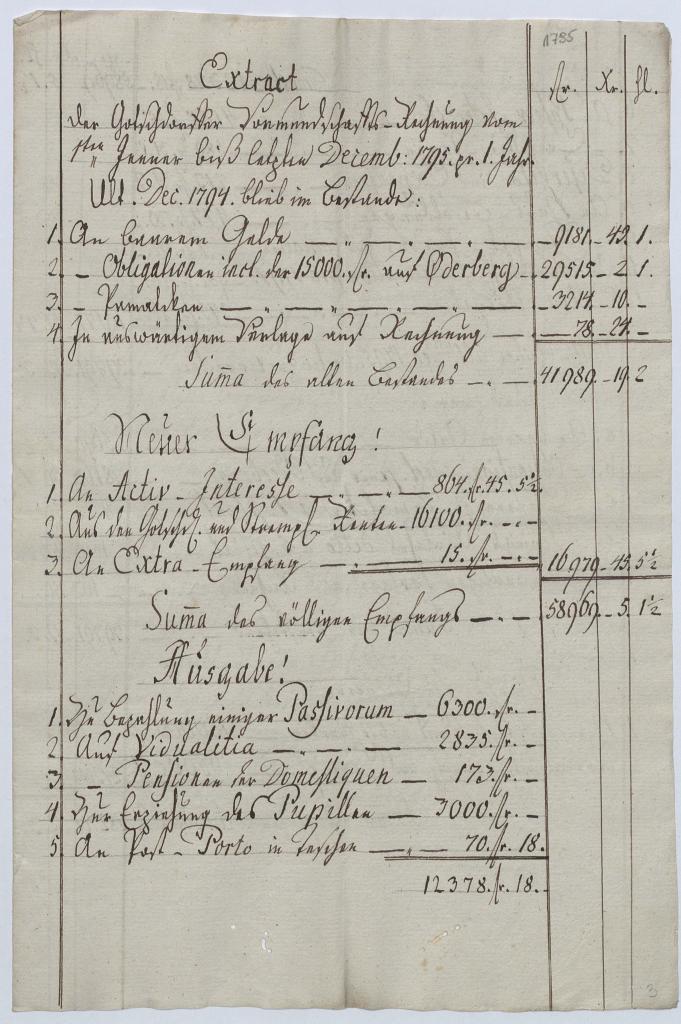 1795
Extract
fr. Xr. hl.
der Gotschdorffer Vormundschaffts-Rechnung vom
1ten Jenner biß letzten Decemb: 1795. pr. 1. Jahr.
Ult. Dec. 1794. blieb im Bestande:
1. An baarem Gelde — 9181. - 43. 1.
2. - Obligationen incl. der 15000. fr. auf Oderberg - 29515. - 2. 1.
3. - — 3214. - 10. -
4. In auswärtigem Verlage auf Rechnung — 78. - 24. -
Sum̅a des alten Bestandes — 41989. - 19. 2
Neuer Empfang!
1. An Activ-Interesse — 864. fr. 45. 5½.
2. Aus den Gotschd. und Renten - 16100. fr. - -
3. An Extra-Empfang — 15. fr. - - 16979. - 45. 5½
Sum̅a des völligen Empfangs — 58969. - 5. 1½
Ausgabe!
1. Zu Bezahlung einiger Passivorum — 6300. fr. -
2. Auf Vidualitia — 2835. fr. -
3. - Pensionen der Domestiquen — 173. fr. -
4. Zur Erziehung des Pupillen — 3000. fr. -
5. An Post-Porto in Teschen — 70. fr. 18.
12378. fr. 18.
3